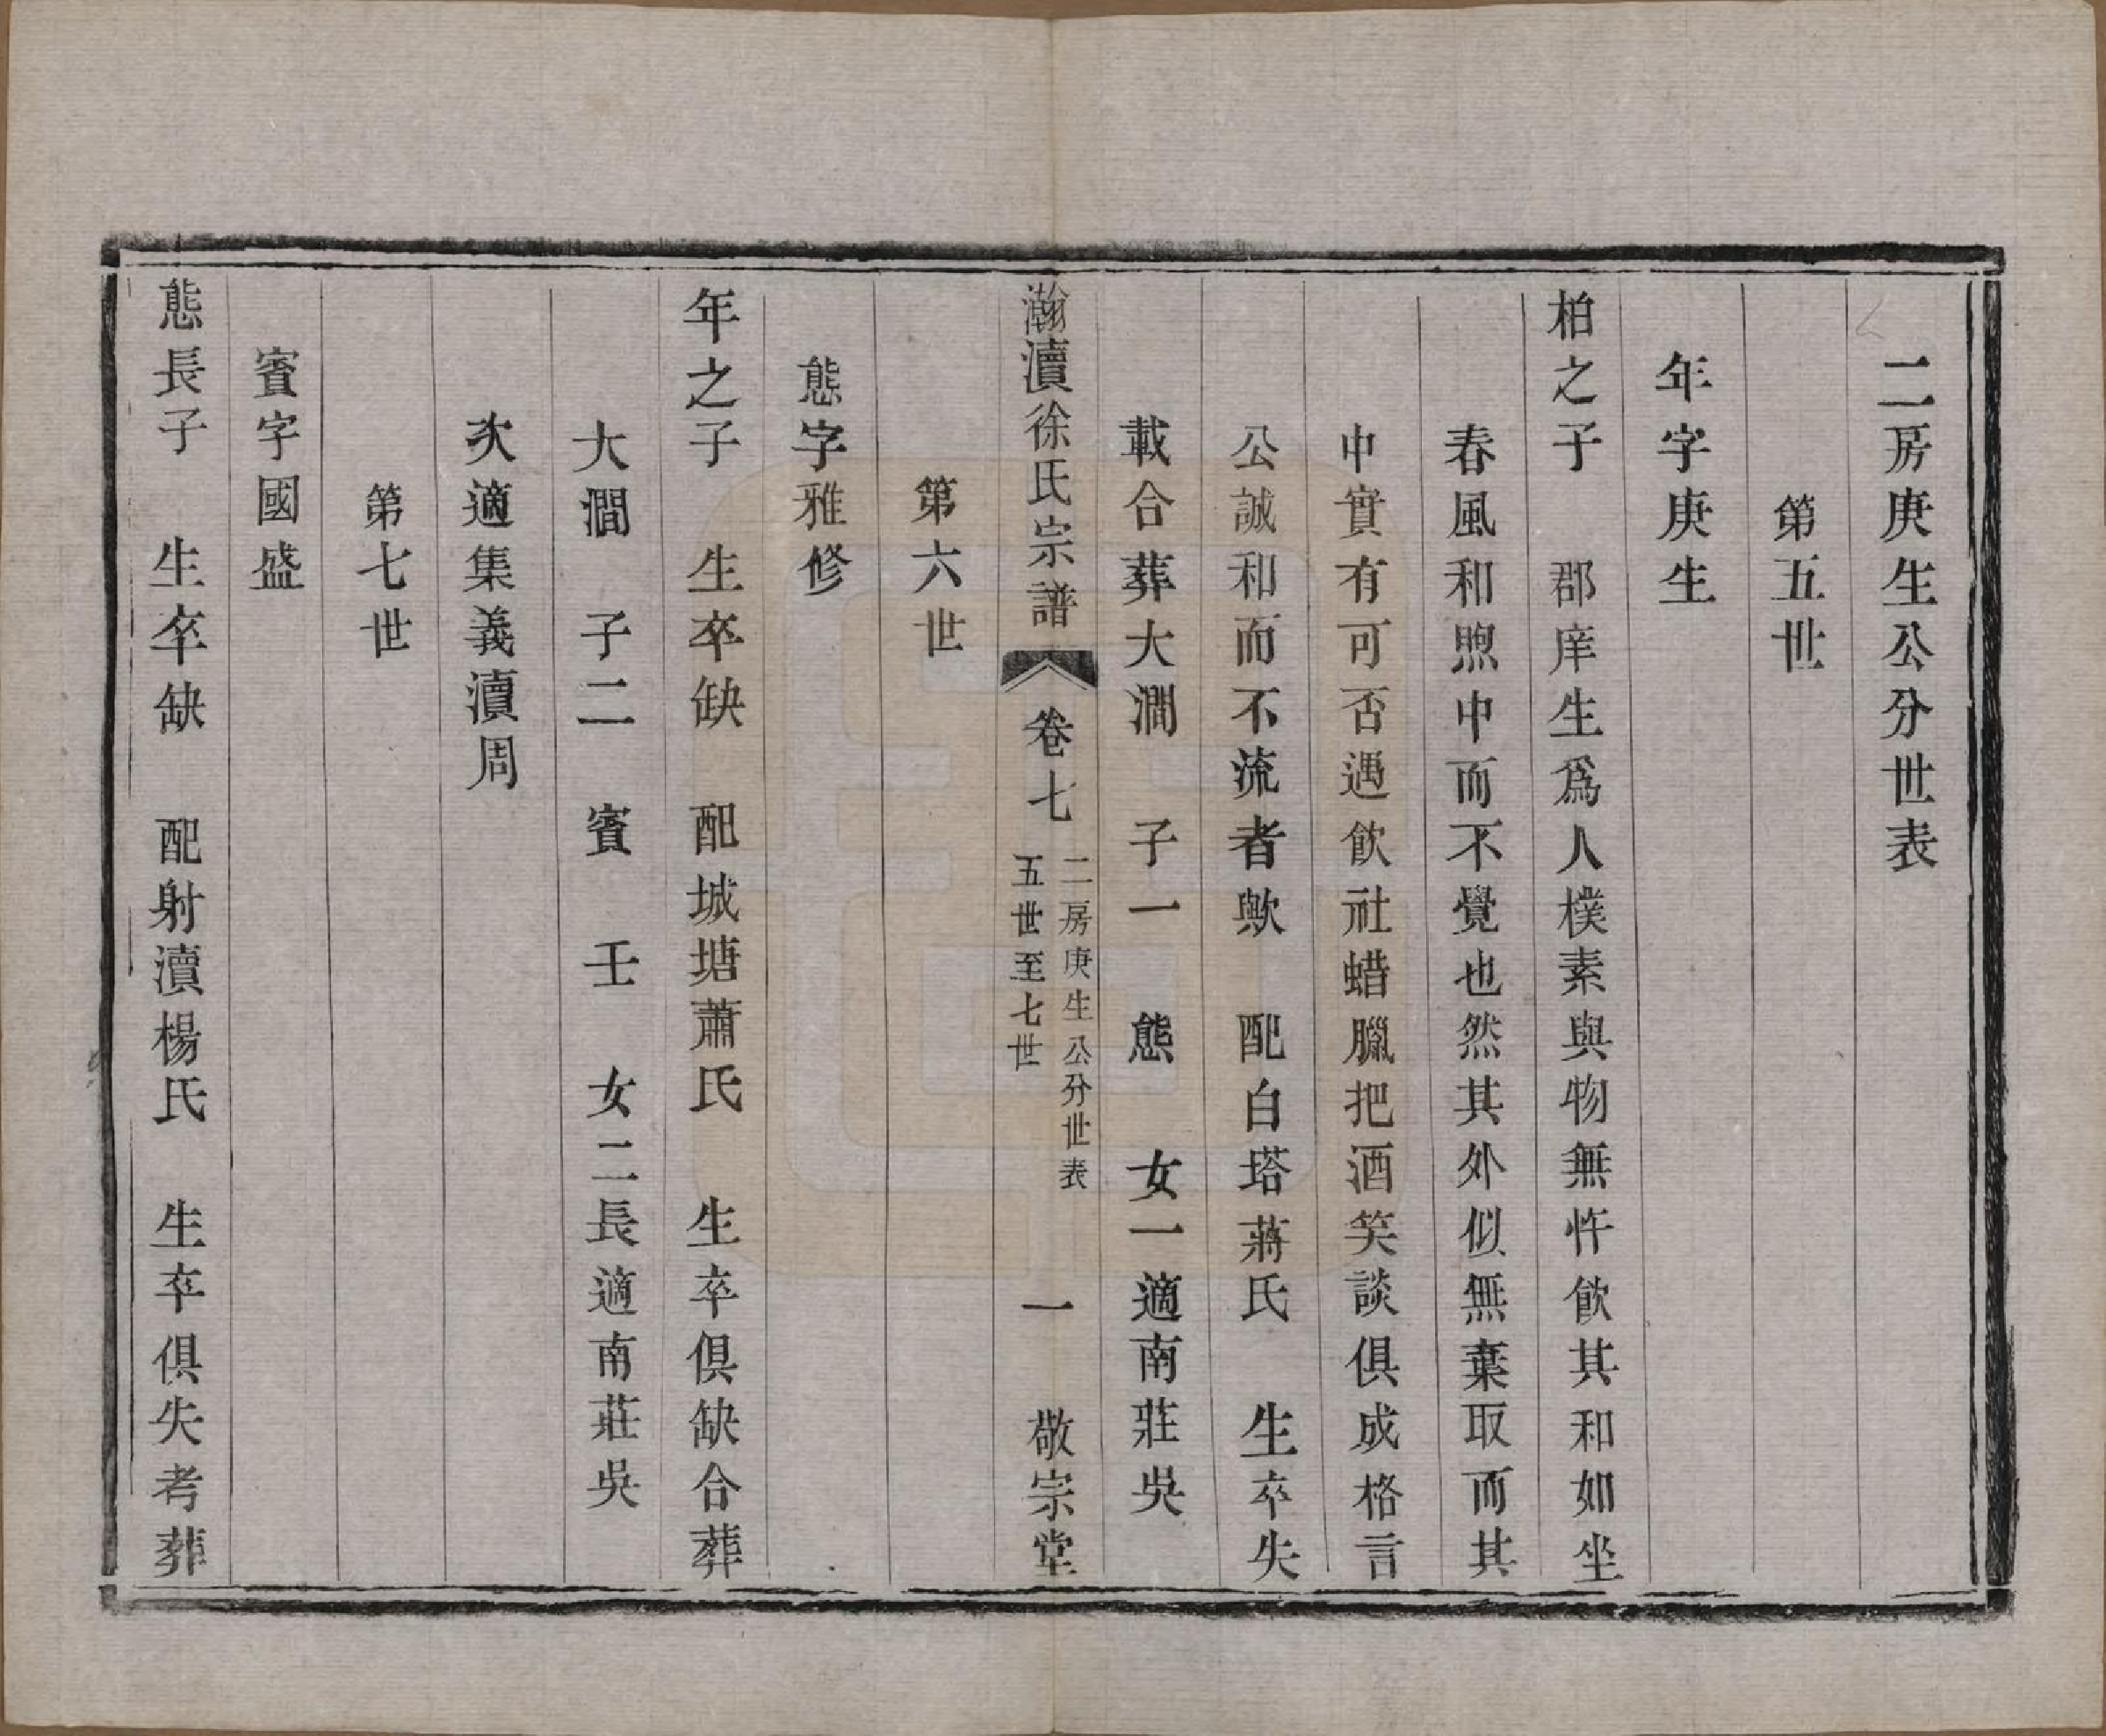 二房庚生公分世表
第五世
年字庚生
柏之子　郡庠生爲人樸素與物無忤飲其和如坐
春風和煦中而不覺也然其外似無棄取而其
中實有可否遇飲社蜡臘把酒笑談俱成格言
公誠和而不流者歟　配白塔蔣氏　生卒失
載合葬大澗　子一　態　女一適南莊吳
瀚瀆徐氏宗譜　卷七　二房庚生公分世表
五世至七世　一　敬宗堂
第六世
態字雅修
年之子　生卒缺　配城塘蕭氏　生卒俱缺合葬
大澗　子二　賓　壬　女二長適南莊吳
次適集義瀆周
第七世
賓字國盛
態長子　生卒缺　配射瀆楊氏　生卒俱失考葬